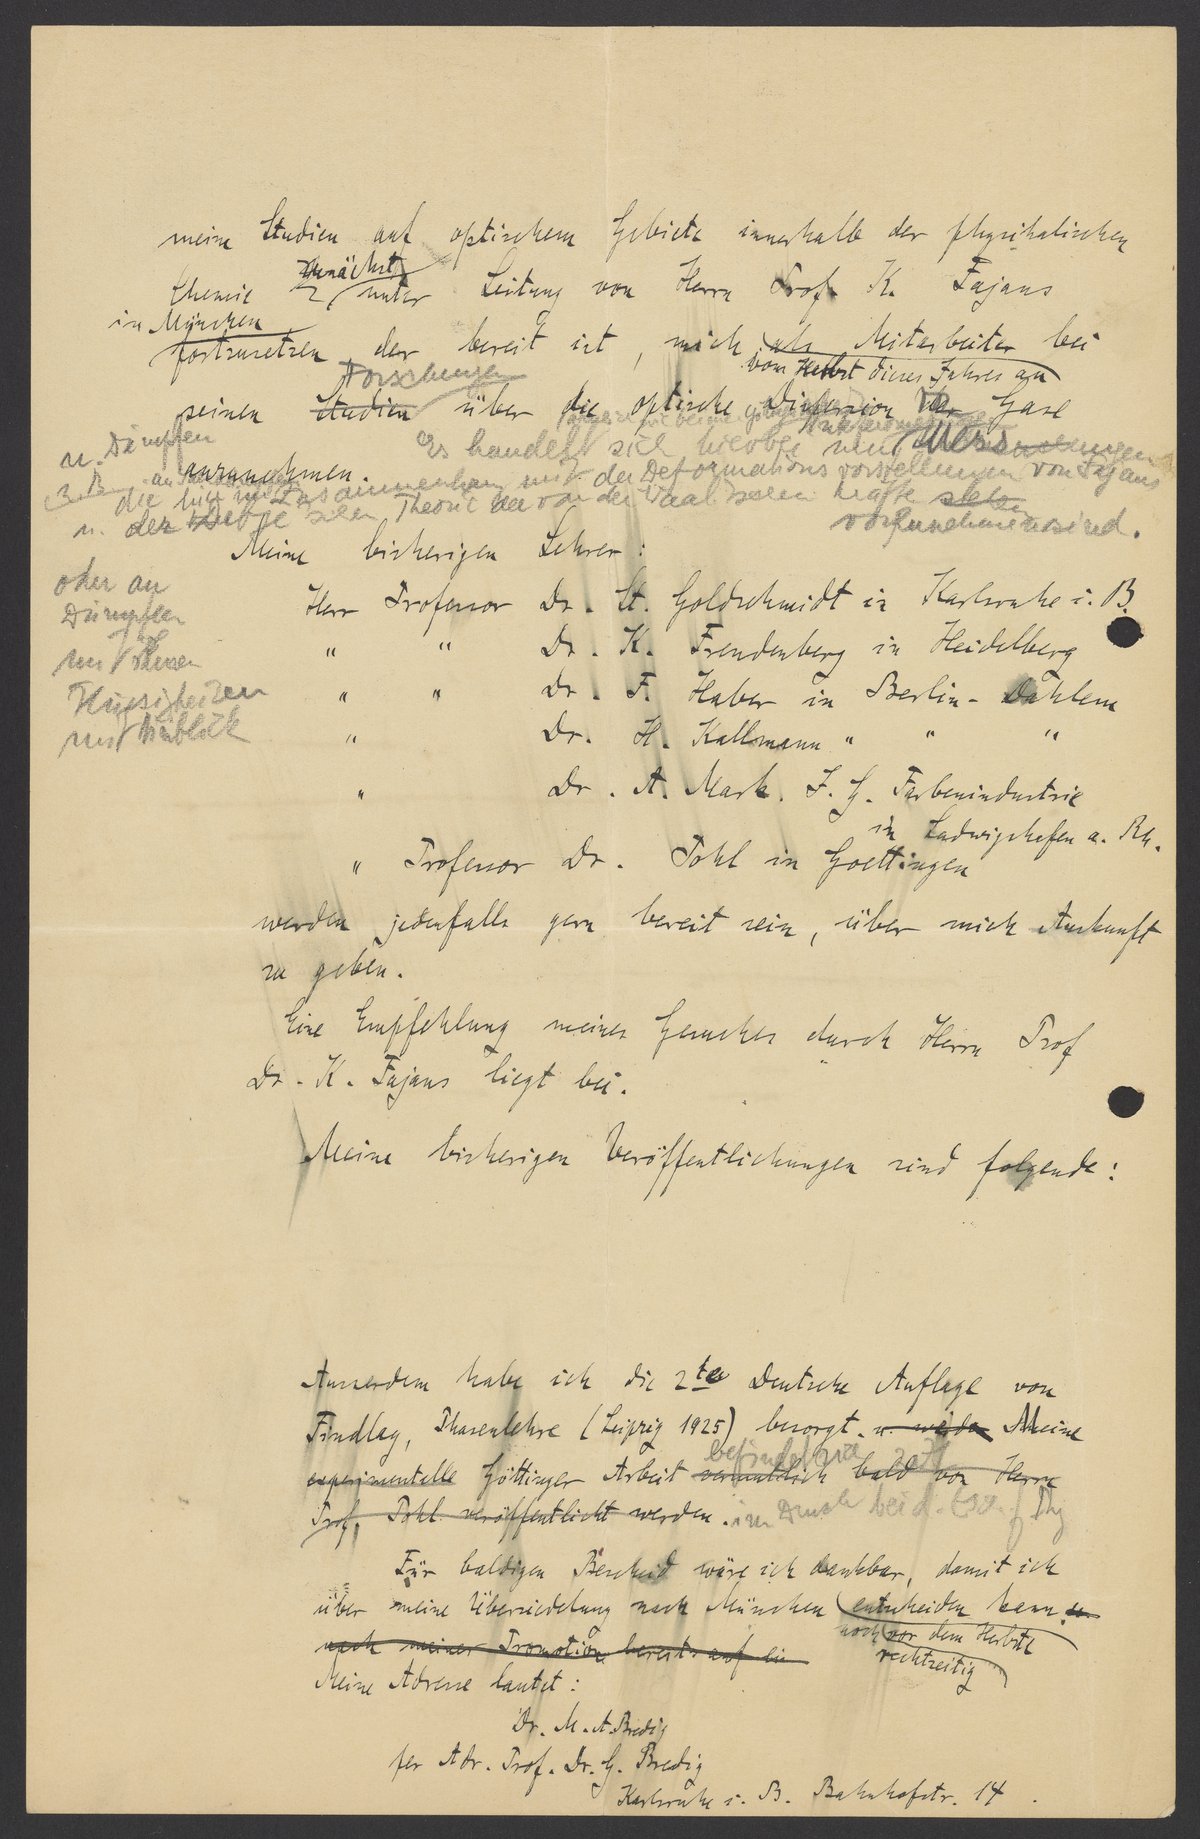 meine Studien auf optischem Gebiete innerhalb der physikalischen
zunächst
Chemie unter Leitung von Herrn Prof. K. Fajans
in München
fortzusetzen, der bereit ist, mich als Mitarbeiter bei
vom Herbst dieses Jahres an
Forschungen
seinen Studien über die optische Dispersion der Gase
u. Dämpfen
Es handelt sich hierbei um Messungen
anzunehmen.
die im Zusammenhang mit den Deformationsvorstellungen von Fajans
u. der Debye'schen Theorie der van der Waals'schen Kräfte
vorzunehmen sind.
Meine bisherigen Lehrer:
oder an
Dämpfen
und ihren
Flüssigkeiten
mit Hinblick
Herr Professor Dr. St. Goldschmidt in Karlsruhe i. B.
" " Dr. K. Freudenberg in Heidelberg
" " Dr. F. Haber in Berlin-Dahlem
" Dr. H. Kallmann " " "
" Dr. A. Mark. I. G. Farbenindustrie
in Ludwigshafen a. Rh.
" Professor Dr. Pohl in Goettingen
werden jedenfalls gern bereit sein, über mich Auskunft
zu geben.
Eine Empfehlung meines Gesuches durch Herrn Prof
Dr. K. Fajans liegt bei.
Meine bisherigen Veröffentlichungen sind folgende:
Ausserdem habe ich die 2te Deutsche Auflage von
Findlay, Phasenlehre (Leipzig 1925) besorgt. u. Meine
befindet sich
experimentelle Göttinger Arbeit vermutlich bald von Herrn
Prof. Pohl veröffentlicht werden. im Druck bei d.
Für baldigen Bescheid wäre ich dankbar, damit ich
über meine Übersiedelung nach München entscheiden kann
noch vor dem Herbste
nach meiner Promotion bereits auf
rechtzeitig
Meine Adresse lautet:
Dr. M. A. Bredig
per Adr. Prof. Dr. G. Bredig
Karlsruhe i. B. Bahnhofstr. 14.